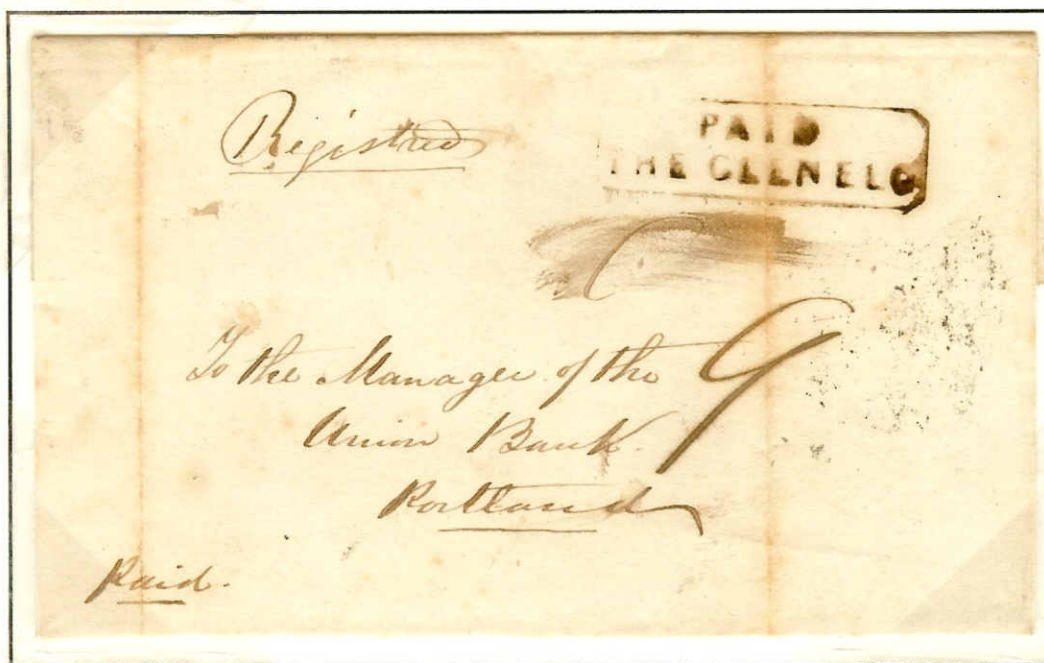 Registred
PAID
THE GLENELG
To the Manager of the
9
Union Bank.
Portland
Paid.